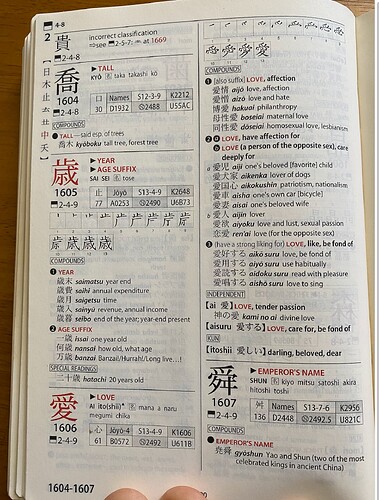 4-8
2
貴
incorrect classification
⇒see 2-5-7: at 1669
2-4-8
【日木止
喬
▶TALL
KYŌ 名 taka takashi kō
1604
口 Names S12-3-9 K2212
30 D1932 2488 U55AC
2-4-8
COMPOUNDS
● TALL —said esp. of trees
喬木 kyōboku tall tree, forest tree
歳
▶YEAR
▶AGE SUFFIX
SAI SEI 名 tose
1605
止 Jōyō S13-4-9 K2648
77 A0253 2490 U6B73
2-4-9
COMPOUNDS
❶ YEAR
歳末 saimatsu year end
歳費 saihi annual expenditure
歳月 saigetsu time
歳入 sainyū revenue, annual income
歳暮 seibo end of the year; year-end present
❷ AGE SUFFIX
一歳 issai one year old
何歳 nansai how old, what age
万歳 banzai Banzai!/Hurrah!/Long live...!
SPECIAL READINGS
二十歳 hatachi 20 years old
愛
▶LOVE
AI ito(shii)▲ 名 mana a naru
megumi chika
1606
心 Jōyō-4 S13-4-9 K1606
61 B0572 2492 U611B
2-4-9
1604-1607
COMPOUNDS
❶ (also suffix) LOVE, affection
愛情 aijō love, affection
愛憎 aizō love and hate
博愛 hakuai philanthropy
母性愛 boseiai maternal love
同性愛 dōseiai homosexual love, lesbianism
❷ a LOVE, have affection for
b LOVE (a person of the opposite sex), care
deeply for
a 愛児 aiji one's beloved [favorite] child
愛犬家 aikenka lover of dogs
愛国心 aikokushin patriotism, nationalism
愛車 aisha one's own car [bicycle]
愛妻 aisai one's beloved wife
b 愛人 aijin lover
愛欲 aiyoku love and lust, sexual passion
恋愛 ren'ai love (for the opposite sex)
❸ (have a strong liking for) LOVE, like, be fond of
愛好する aikō suru love, be fond of
愛用する aiyō suru use habitually
愛読する aidoku suru read with pleasure
愛唱する aishō suru love to sing
INDEPENDENT
【ai 愛】 LOVE, tender passion
神の愛 kami no ai divine love
【aisuru 愛する】 LOVE, care for, be fond of
KUN
【itoshii 愛しい】 darling, beloved, dear
舜
▶EMPEROR'S NAME
SHUN 名 kiyo mitsu satoshi akira
hitoshi toshi
1607
舛 Names S13-7-6 K2956
136 D2448 2492.5 U821C
2-4-9
COMPOUNDS
● EMPEROR'S NAME
堯舜 gyōshun Yao and Shun (two of the most
celebrated kings in ancient China)